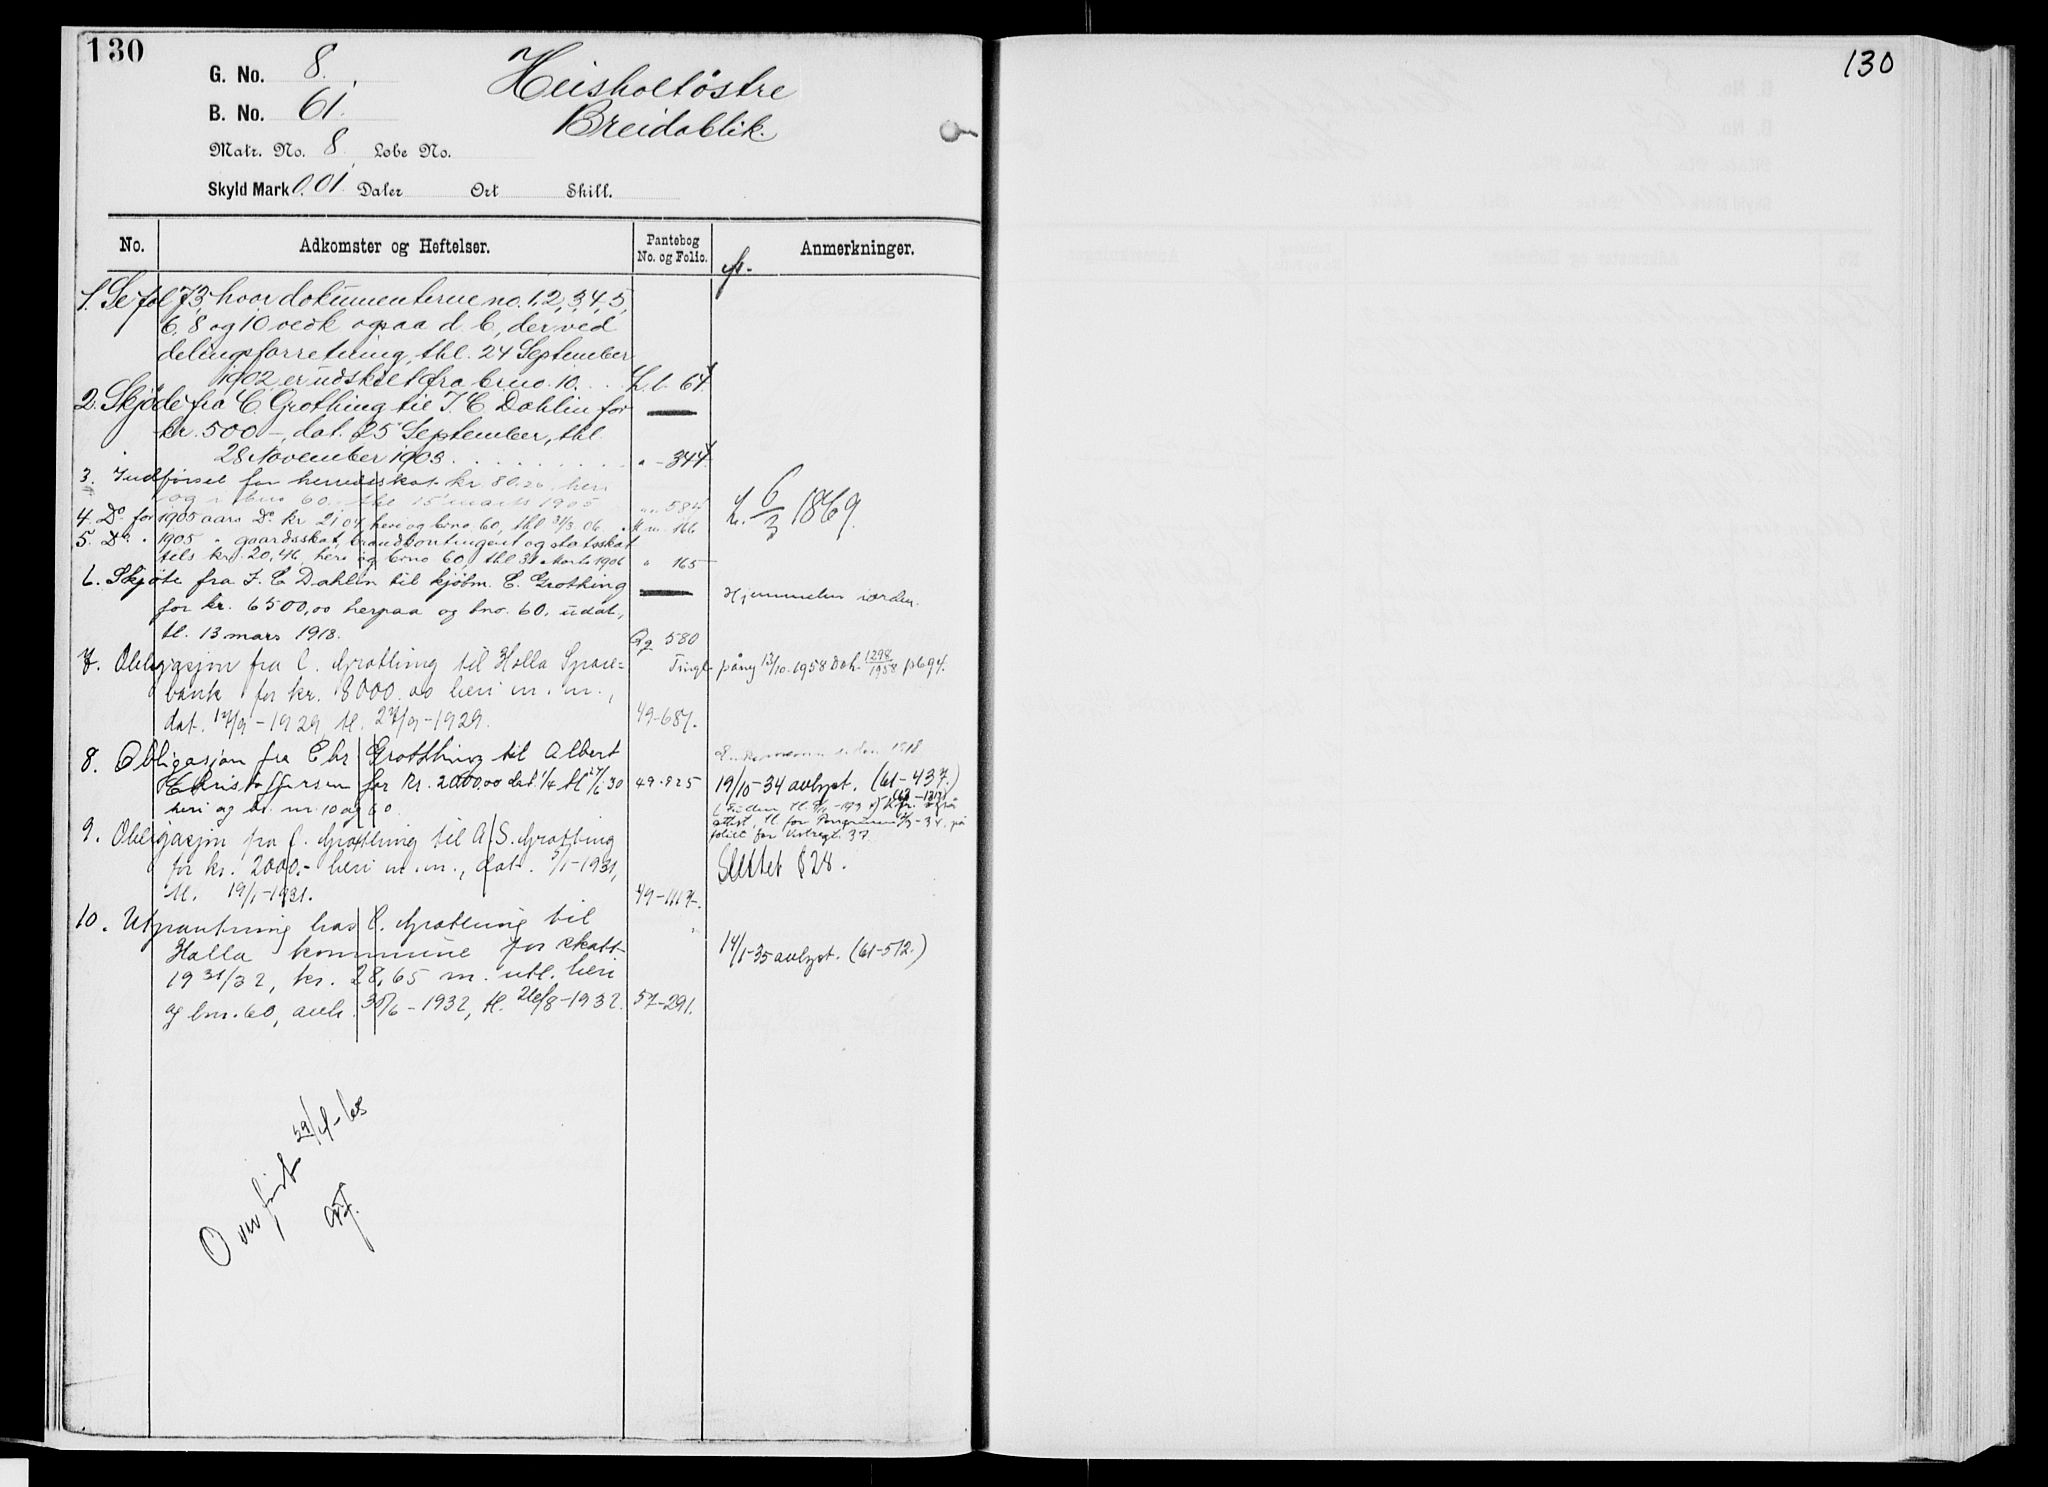 130
G. No. 8.
B. No. 61.
Matr. No. 8. Løbe No.
Skyld Mark 0.01. Daler Ort Skill.
Heisholtöstre
Breidablik.
No. Adkomster og Heftelser. Pantebog No. og Folio. Anmerkninger.
1. Se fol 73, hvor dokumenterne no. 1, 2, 3, 4, 5,
6, 8 og 10 vedk ogsaa d. b, der ved
delingsforretning, thl. 24 September
1902, er udskilt fra brno. 10. . . L b 64
2. Skjøde fra C. Grothing til J. C. Dahlin for
kr. 500 –, dat. 25 September, thl.
28 November 1903. . . . " – 344
3. Indførsel for herredsskat kr 80.20, heri
og i bno 60, thl 15 marts 1905 " " 584
4. Do. for 1905 aars Do. kr 21,04, heri og brno. 60, thl 31/3 06 166
5. Do. " 1905 " gaardsskat, brandkontingent og statsskat
tils kr. 20,46, heri og brno 60, thl 31 Marts 1906 " 165
L. 6/3 1869
6. Skjøte fra J. C Dahlin til kjøbm. C. Grothing
for kr. 6500,00 herpaa og bno. 60, udat,
tl. 13 mars 1918. 580
Hjemmelen iorden.
7. Obligasjon fra C. Grothing til Holla Spare=
bank for kr. 8000.00 heri m. m.,
dat. 17/9 – 1929, tl. 27/9 – 1929. 49-687.
Tingl. påny 13/10.1958 Dok. 1298/1958 p694.
8. Obligasjon fra Chr Grotthing til Albert
Christoffersen for kr. 2000,00 dat 1/6 tl 27/6 30 49-825
heri og br. nr. 10 og 60
siden 1918
19/10-34 avlyst. (61-437.)
9. Obligasjon fra C. Grotting til A/S. Grotting
for kr. 2000.- heri m. m., dat. 5/1-1931,
tl. 19/1-1931. 49-1117.
Slettet § 28.
10. Utpantning hos C. Grotting til
Holla kommune for skatt
1931/32, kr. 28,65 m. utl. heri
og bnr. 60, avh. 30/6 – 1932, tl. 26/8 – 1932. 57-291.
14/1-35 avlyst. (61-512.)
Overført 29/4-68
130